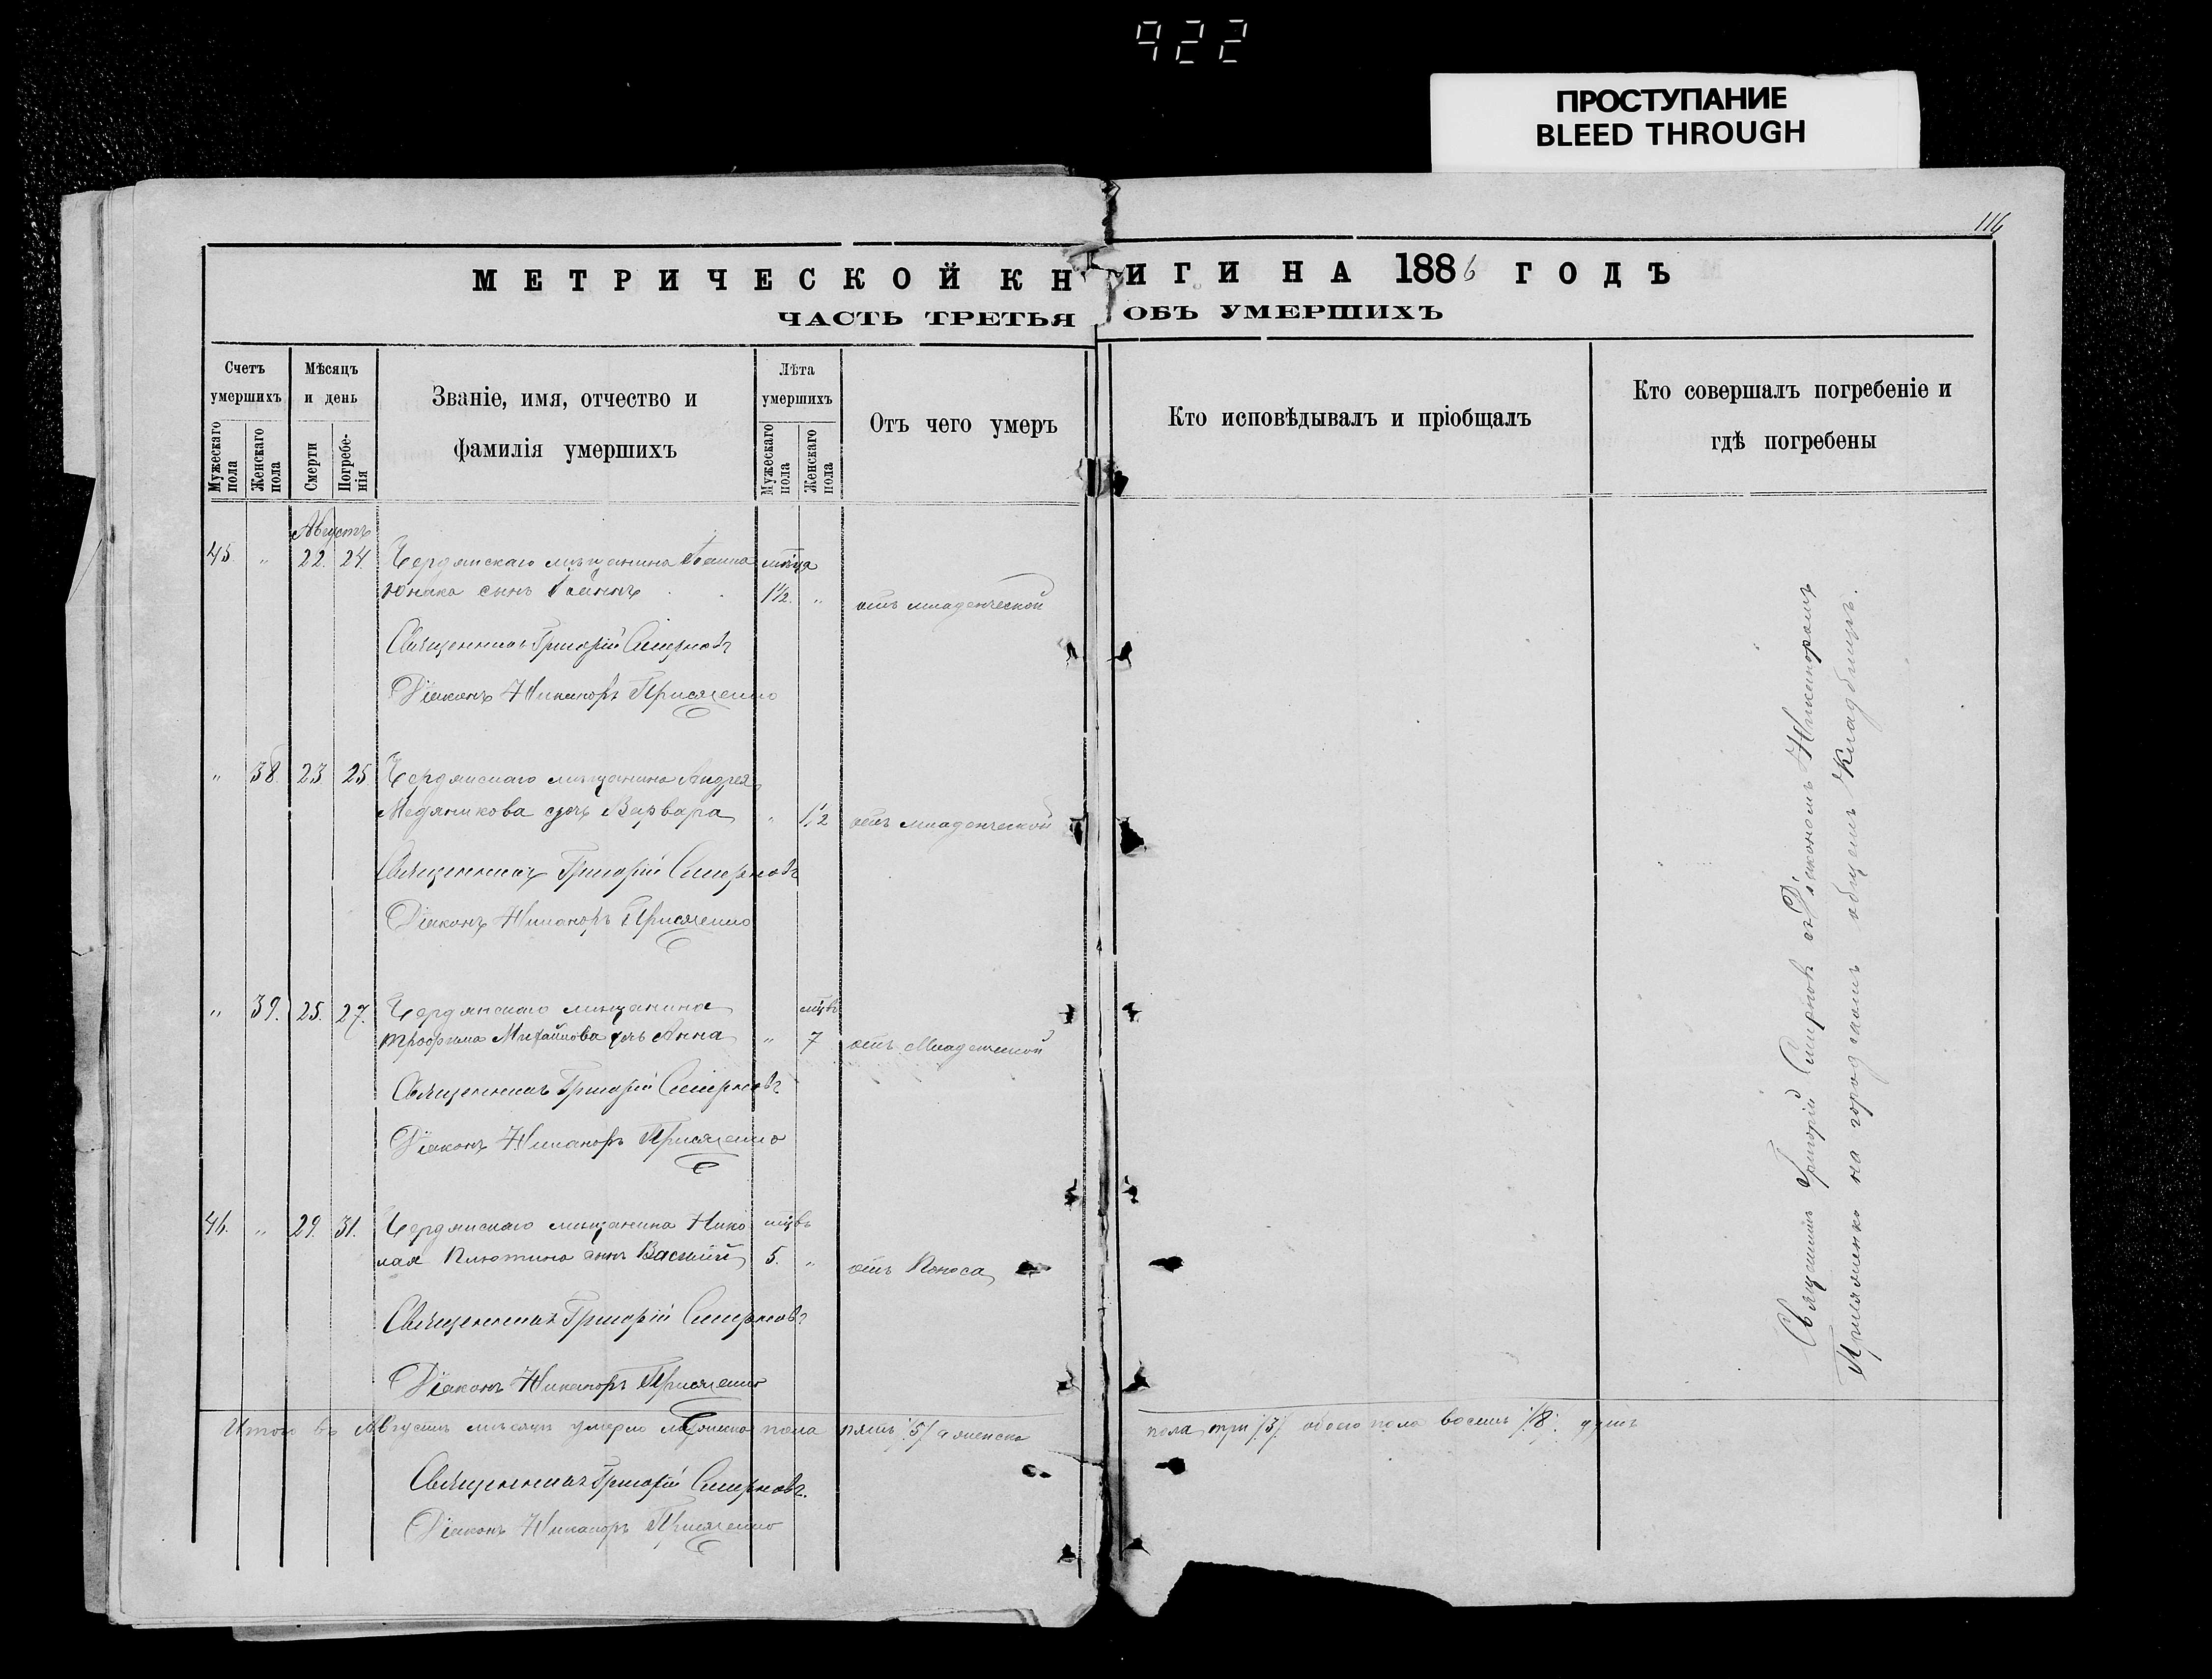 922
ПРОСТУПАНИЕ
BLEED THROUGH
116
МЕТРИЧЕСКОЙ КНИГИ НА 1886 ГОДЪ
ЧАСТЬ ТРЕТЬЯ ОБЪ УМЕРШИХЪ
Счетъ умершихъ
Мужескаго пола
Женскаго пола
Мѣсяцъ и день
Смерти
Погребенія
Званіе, имя, отчество и
фамилія умершихъ
Лѣта умершихъ
Мужескаго пола
Женскаго пола
Отъ чего умеръ
Кто исповѣдывалъ и пріобщалъ
Кто совершалъ погребеніе и
гдѣ погребены
Августъ
45 " 22. 24. Бердянскаго мѣщанина
сынъ 1½. " отъ младенческой
Священникъ Григорій Смирновъ
Діаконъ Никаноръ
" 38. 23 25 Бердянскаго мѣщанина Андрея
Медяникова дочь Варвара " 1½ отъ младенческой
Священникъ Григорій Смирновъ
Діаконъ Никаноръ
" 39. 25. 27. Бердянскаго мѣщанина мцвъ
Трофима Михайлова дочь Анна " 7 отъ младенческой
Священникъ Григорій Смирновъ
Діаконъ Никаноръ
46. " 29. 31. Бердянскаго мѣщанина Нико мцвъ
лая сынъ Василій 5. " отъ Поноса
Священникъ Григорій Смирновъ
Діаконъ Никаноръ
Итого въ Августѣ мѣсяцѣ умерло пола пять /5/ а женска пола три /3/ обоего пола восемь /8/ душъ
Священникъ Григорій Смирновъ.
Діаконъ Никаноръ
Священникъ Григорій Смирновъ съ Діакономъ Никаноромъ
на городскомъ общемъ Кладбищѣ.